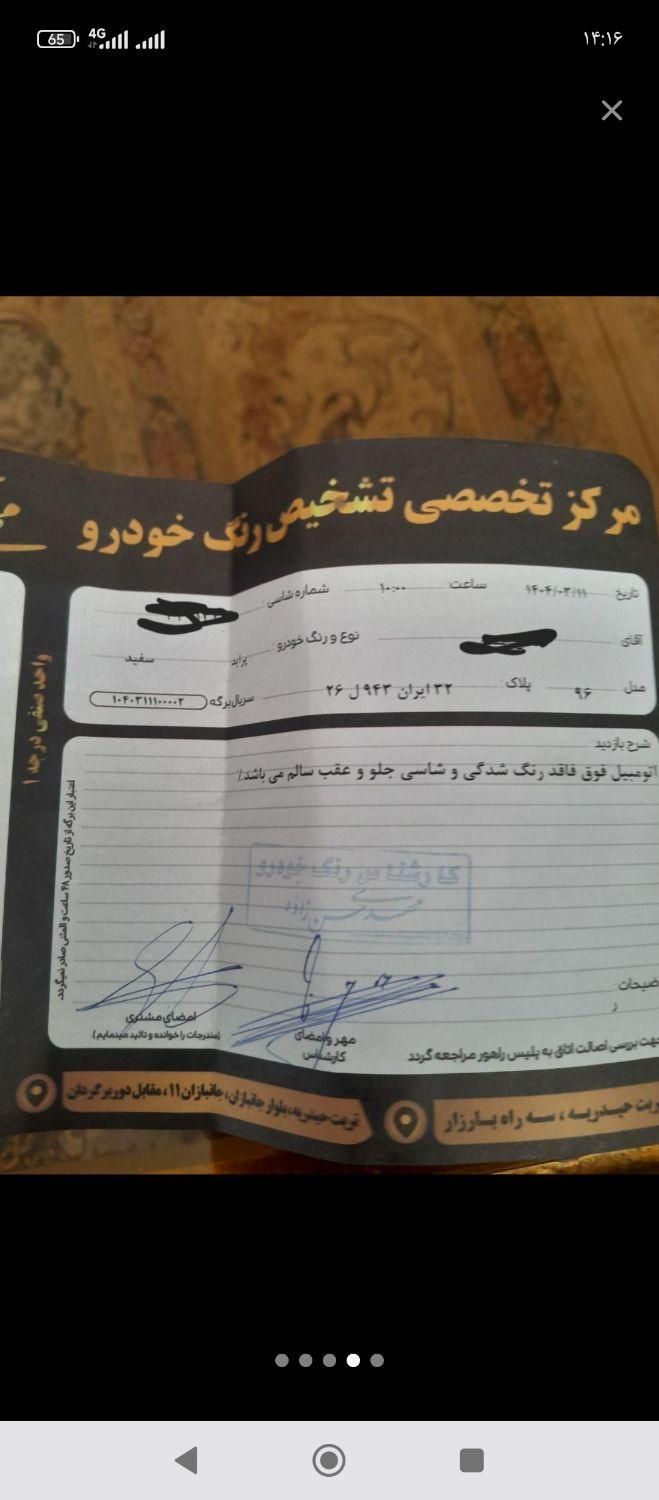 65 4G ۱۴:۱۶
مرکز تخصصی تشخیص رنگ خودرو
تاریخ ۱۴۰۴/۰۳/۱۱ ساعت ۱۰:۰۰ شماره شاسی:
آقای نوع و رنگ خودرو پراید سفید
مدل ۹۶ پلاک ۳۲ ایران ۹۴۳ ل ۲۶ سریال برگه ۱۰۴۰۳۱۱۱۰۰۰۰۲
شرح بازدید
اتومبیل فوق فاقد رنگ شدگی و شاسی جلو و عقب سالم می باشد.٪
کارشناس رنگ خودرو
امضای مشتری
(مندرجات را خوانده و تائید مینمایم).
مهر و امضای
کارشناس
جهت بررسی اصالت اتاق به پلیس راهور مراجعه گردد
اعتبار این برگه از تاریخ صدور ۴۸ ساعت و المثنی صادر نمیگردد.
واحد صنفی درجه ۱
تربت حیدریه ، سه راه یارزار
تربت حیدریه، بلوار جانبازان، جانبازان ۱۱، مقابل دوربرگردان